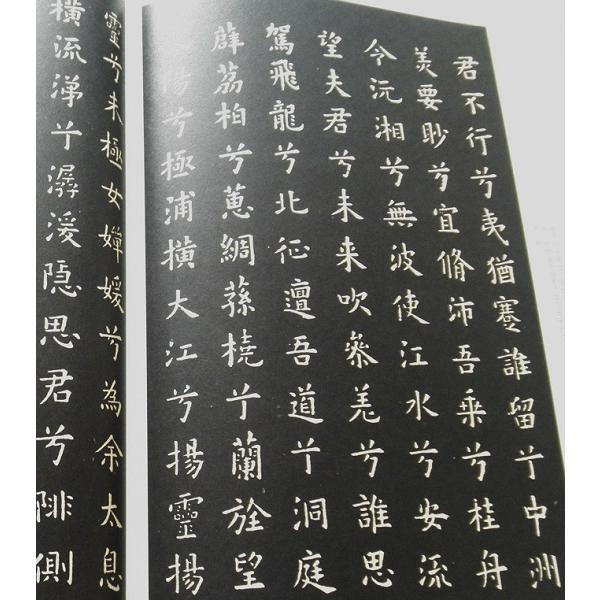 君不行兮夷猶蹇誰留兮中洲
美要眇兮宜脩沛吾乘兮桂舟
令沅湘兮無波使江水兮安流
望夫君兮未来吹參差兮誰思
駕飛龍兮北征邅吾道兮洞庭
薜荔柏兮蕙綢蓀橈兮蘭旌望
陽兮極浦橫大江兮揚靈揚
靈兮未極女嬋媛兮為余太息
橫流涕兮潺湲隱思君兮陫側